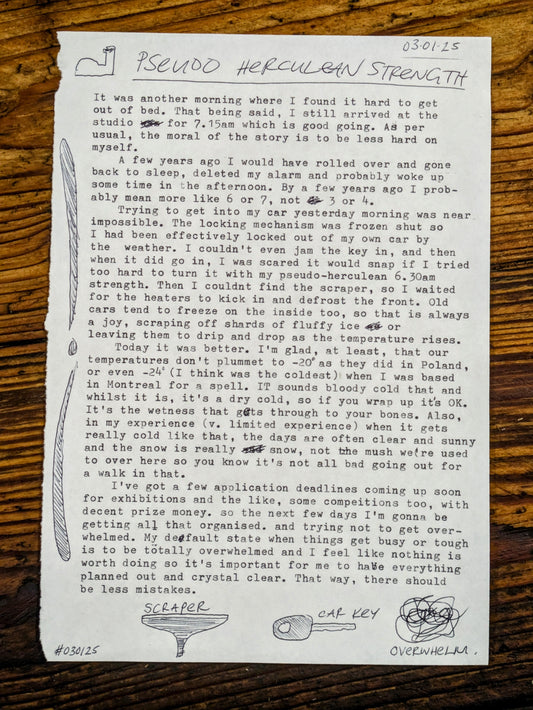 03.01.25
PSEUDO HERCULEAN STRENGTH
It was another morning where I found it hard to get
out of bed. That being said, I still arrived at the
studio for 7.15am which is good going. As per
usual, the moral of the story is to be less hard on
myself.
A few years ago I would have rolled over and gone
back to sleep, deleted my alarm and probably woke up
some time in the afternoon. By a few years ago I prob-
ably mean more like 6 or 7, not 3 or 4.
Trying to get into my car yesterday morning was near
impossible. The locking mechanism was frozen shut so
I had been effectively locked out of my own car by
the weather. I couldn't even jam the key in, and then
when it did go in, I was scared it would snap if I tried
too hard to turn it with my pseudo-herculean 6.30am
strength. Then I couldnt find the scraper, so I waited
for the heaters to kick in and defrost the front. Old
cars tend to freeze on the inside too, so that is always
a joy, scraping off shards of fluffy ice or
leaving them to drip and drop as the temperature rises.
Today it was better. I'm glad, at least, that our
temperatures don't plummet to -20° as they did in Poland,
or even -24° (I think was the coldest) when I was based
in Montreal for a spell. IT sounds bloody cold that and
whilst it is, it's a dry cold, so if you wrap up it's OK.
It's the wetness that gets through to your bones. Also,
in my experience (v. limited experience) when it gets
really cold like that, the days are often clear and sunny
and the snow is really snow, not the mush we're used
to over here so you know it's not all bad going out for
a walk in that.
I've got a few application deadlines coming up soon
for exhibitions and the like, some compeitions too, with
decent prize money. so the next few days I'm gonna be
getting all that organised. and trying not to get over-
whelmed. My default state when things get busy or tough
is to be totally overwhelmed and I feel like nothing is
worth doing so it's important for me to have everything
planned out and crystal clear. That way, there should
be less mistakes.
SCRAPER
CAR KEY
OVERWHELM.
#030125